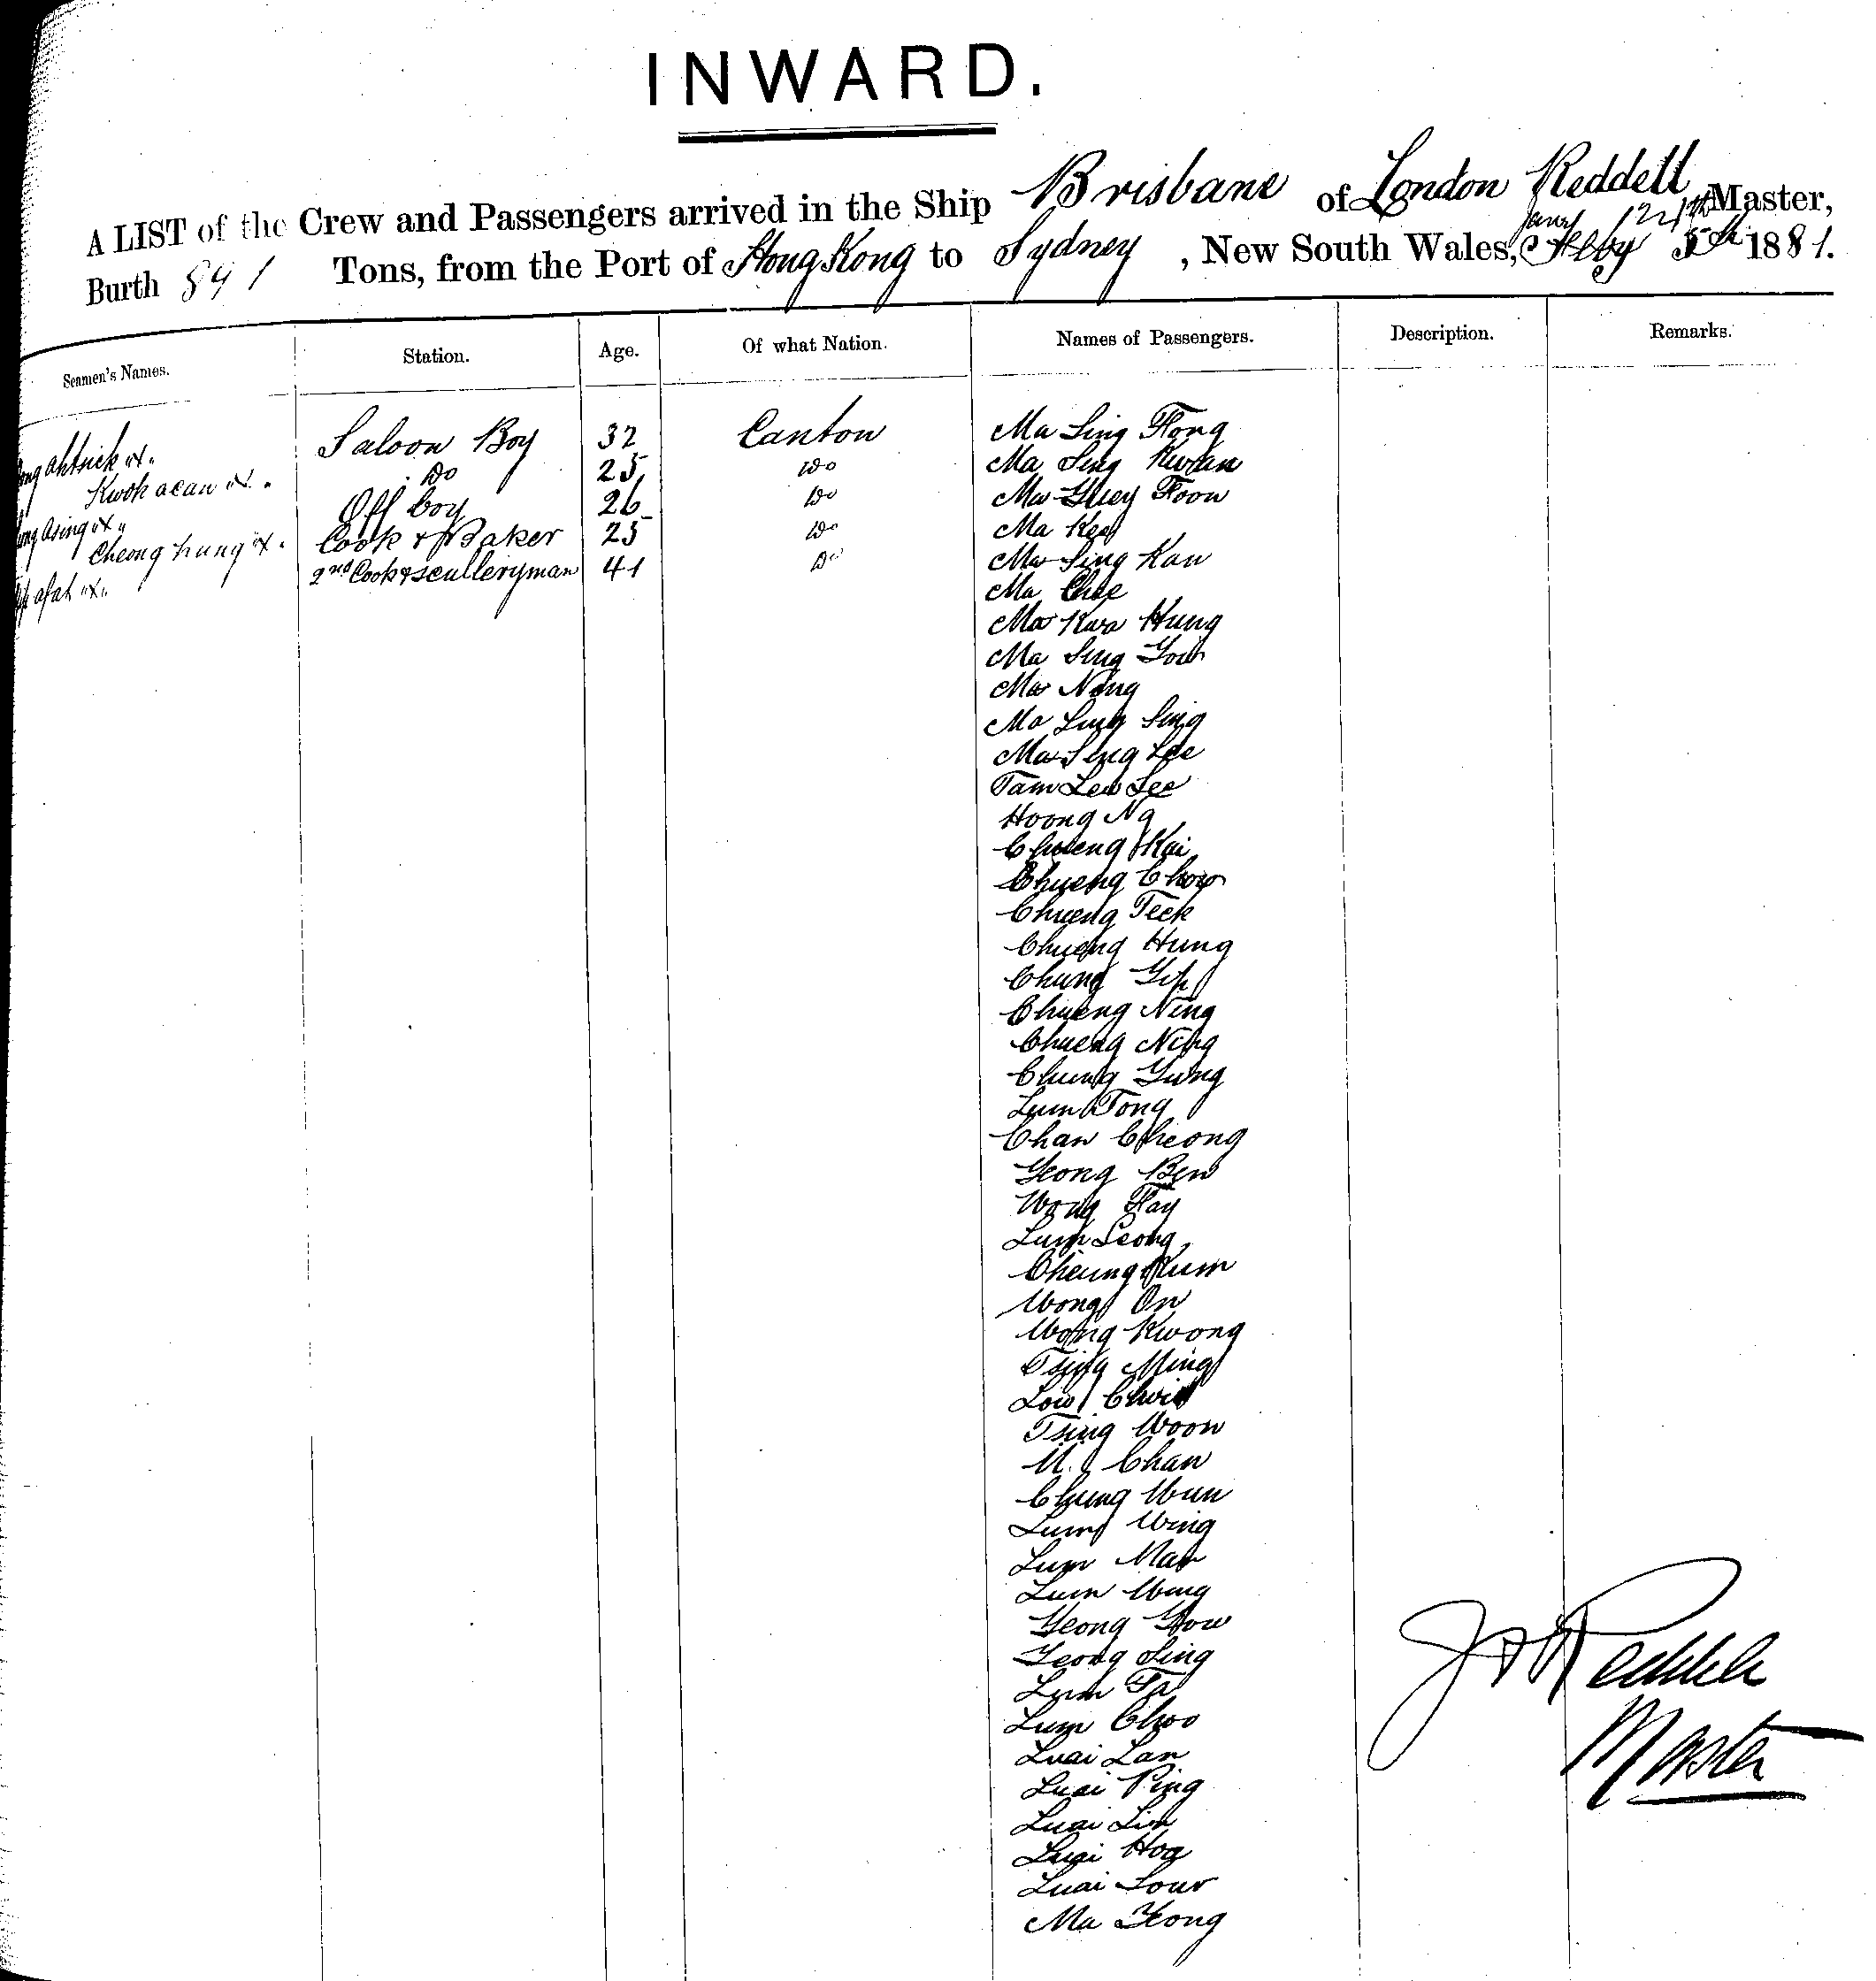 INWARD.
A LIST of the Crew and Passengers arrived in the Ship Brisbane of London Reddell Master,
Burth 891 Tons, from the Port of Hong Kong to Sydney, New South Wales, Feby 5th 1881.
Seamen's Names. Station. Age. Of what Nation. Names of Passengers. Description. Remarks.
Saloon Boy 32 Canton Ma Sing Fong
Kwok acan "x" Do 25 Do Ma Sing Kwan
Off boy 26 Do Ma Yuey Foon
Cheong hung "x" Cook & Baker 25 Do Ma Kee
afat "x" 2nd Cook & scullery man 41 Do Ma Sing Kan
Ma Chee
Ma Kwa Hung
Ma Sing Yow
Ma Ning
Ma Lung Sing
Ma Sing Lee
Tam Lew See
Hoong Ng
Chueng Kai
Chueng Chow
Chueng Teck
Chueng Hung
Chung Yip
Chueng Ning
Chueng Ning
Chung Yung
Lum Tong
Chan Cheong
Yeong Ben
Wong Fay
Lum Leong
Cheung Kum
Wong On
Wong Kwong
Tsing Ming
Low
Tsing Woon
U. Chan
Chung Wun
Lum Wing
Lum Man
Lum Wing
Yeong You
Yeong Sing
Lum Ta
Lum Choo
Luai Lan
Luai Ping
Luai Lin
Luai Hog
Luai Sour
Ma Yeong
Reddell
Master